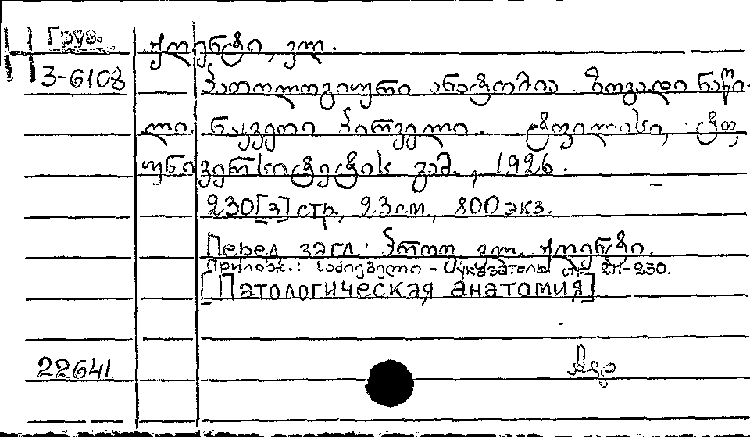 Н Груз.
3-6108
ჟღენტი, ვლ.
პათოლოგიური ანატომია. ზოგადი ნაწი-
ლი. ნაკვეთი პირველი. ტფილისი, ტფ.
უნივერსიტეტის გამ., 1926.
230[3] стр, 23 см., 800 экз.
Перед загл: პროფ. ვლ. ჟღენტი.
Прилож.: საძიებელი - Указатель стр. -230.
[Патологическая анатомия]
22641